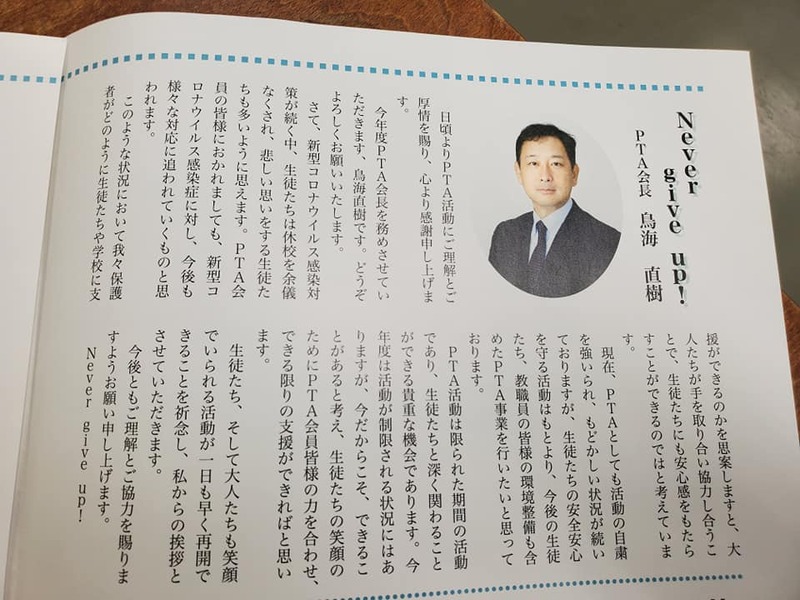 Never give up!
PTA会長　鳥海　直樹
日頃よりPTA活動にご理解とご
厚情を賜り、心より感謝申し上げま
す。
今年度PTA会長を務めさせてい
ただきます、鳥海直樹です。どうぞ
よろしくお願いいたします。
さて、新型コロナウイルス感染対
策が続く中、生徒たちは休校を余儀
なくされ、悲しい思いをする生徒た
ちも多いように思えます。PTA会
員の皆様におかれましても、新型コ
ロナウイルス感染症に対し、今後も
様々な対応に追われていくものと思
われます。
このような状況において我々保護
者がどのように生徒たちや学校に支
援ができるのかを思案しますと、大
人たちが手を取り合い協力し合うこ
とで、生徒たちにも安心感をもたら
すことができるのではと考えていま
す。
現在、PTAとしても活動の自粛
を強いられ、もどかしい状況が続い
ておりますが、生徒たちの安全安心
を守る活動はもとより、今後の生徒
たち、教職員の皆様の環境整備も含
めたPTA事業を行いたいと思って
おります。
PTA活動は限られた期間の活動
であり、生徒たちと深く関わること
ができる貴重な機会であります。今
年度は活動が制限される状況にはあ
りますが、今だからこそ、できるこ
とがあると考え、生徒たちの笑顔の
ためにPTA会員皆様の力を合わせ、
できる限りの支援ができればと思い
ます。
生徒たち、そして大人たちも笑顔
でいられる活動が一日も早く再開で
きることを祈念し、私からの挨拶と
させていただきます。
今後ともご理解とご協力を賜りま
すようお願い申し上げます。
Never give up!